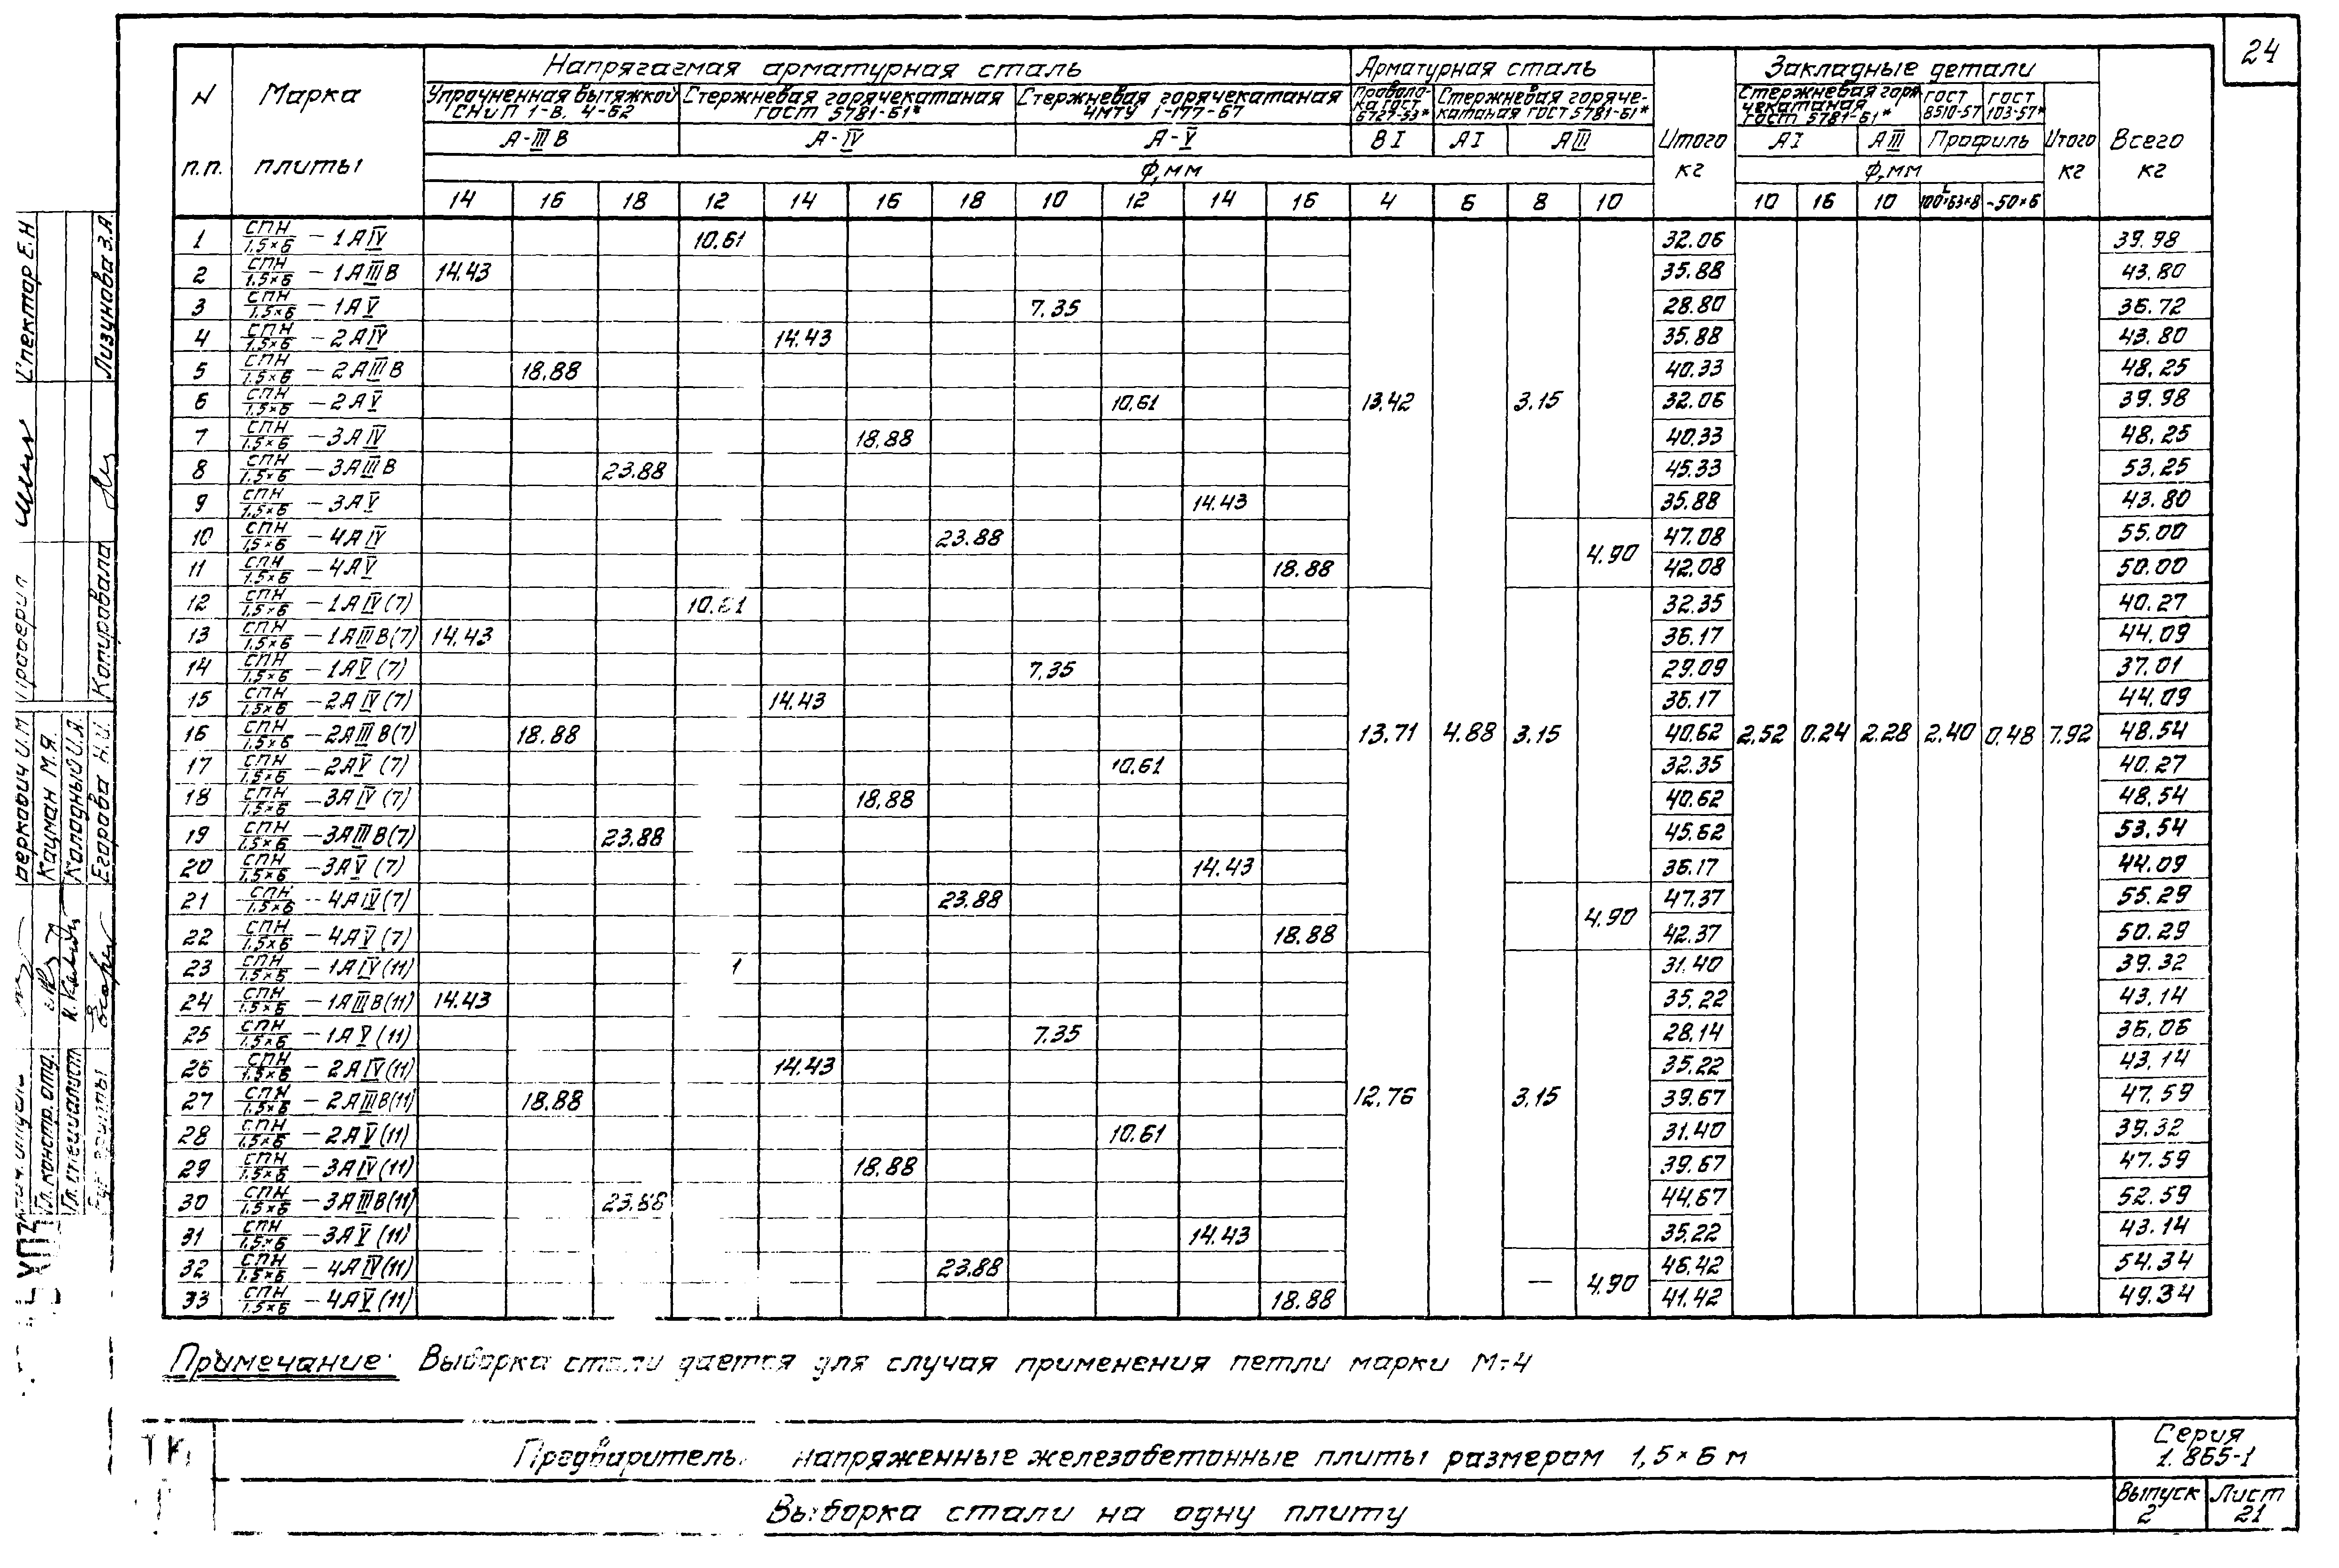 24
N п.п.
Марка плиты
Напрягаемая арматурная сталь
Арматурная сталь
Итого кг
Закладные детали
Всего кг
Упрочненная вытяжкой СНиП 1-В. 4-62
Стержневая горячекатаная ГОСТ 5781-61*
Стержневая горячекатаная ЧМТУ 1-177-67
Проволока ГОСТ 6727-53*
Стержневая горячекатаная ГОСТ 5781-61*
Стержневая горячекатаная ГОСТ 5781-61*
ГОСТ 8510-57
ГОСТ 103-57*
А-IIIВ А-IV А-V ВI АI АIII АI АIII Профиль Итого кг
Ф, мм Ф, мм
14 16 18 12 14 16 18 10 12 14 16 4 6 8 10 10 16 10 L100×63×8 -50×6
1 СПН/1,5×6 – 1АIV 10.61 32.06 39.98
2 СПН/1,5×6 – 1АIIIВ 14.43 35.88 43.80
3 СПН/1,5×6 – 1АV 7.35 28.80 36.72
4 СПН/1,5×6 – 2АIV 14.43 35.88 43.80
5 СПН/1,5×6 – 2АIIIВ 18.88 40.33 48.25
6 СПН/1,5×6 – 2АV 10.61 13.42 3.15 32.06 39.98
7 СПН/1,5×6 – 3АIV 18.88 40.33 48.25
8 СПН/1,5×6 – 3АIIIВ 23.88 45.33 53.25
9 СПН/1,5×6 – 3АV 14.43 35.88 43.80
10 СПН/1,5×6 – 4АIV 23.88 4.90 47.08 55.00
11 СПН/1,5×6 – 4АV 18.88 42.08 50.00
12 СПН/1,5×6 – 1АIV(7) 10.61 32.35 40.27
13 СПН/1,5×6 – 1АIIIВ(7) 14.43 36.17 44.09
14 СПН/1,5×6 – 1АV(7) 7.35 29.09 37.01
15 СПН/1,5×6 – 2АIV(7) 14.43 36.17 44.09
16 СПН/1,5×6 – 2АIIIВ(7) 18.88 13.71 4.88 3.15 40.62 2.52 0.24 2.28 2.40 0.48 7.92 48.54
17 СПН/1,5×6 – 2АV(7) 10.61 32.35 40.27
18 СПН/1,5×6 – 3АIV(7) 18.88 40.62 48.54
19 СПН/1,5×6 – 3АIIIВ(7) 23.88 45.62 53.54
20 СПН/1,5×6 – 3АV(7) 14.43 36.17 44.09
21 СПН/1,5×6 – 4АIV(7) 23.88 4.90 47.37 55.29
22 СПН/1,5×6 – 4АV(7) 18.88 42.37 50.29
23 СПН/1,5×6 – 1АIV(11) 31.40 39.32
24 СПН/1,5×6 – 1АIIIВ(11) 14.43 35.22 43.14
25 СПН/1,5×6 – 1АV(11) 7.35 28.14 36.06
26 СПН/1,5×6 – 2АIV(11) 14.43 35.22 43.14
27 СПН/1,5×6 – 2АIIIВ(11) 18.88 12.76 3.15 39.67 47.59
28 СПН/1,5×6 – 2АV(11) 10.61 31.40 39.32
29 СПН/1,5×6 – 3АIV(11) 18.88 39.67 47.59
30 СПН/1,5×6 – 3АIIIВ(11) 23.88 44.67 52.59
31 СПН/1,5×6 – 3АV(11) 14.43 35.22 43.14
32 СПН/1,5×6 – 4АIV(11) 23.88 — 4.90 46.42 54.34
33 СПН/1,5×6 – 4АV(11) 18.88 41.42 49.34
Примечание: Выборка стали дается для случая применения петли марки М-4
Предваритель напряженные железобетонные плиты размером 1,5×6 м
Серия 1.865-1
Выборка стали на одну плиту
Выпуск 2
Лист 21
ТК
Спектор Е.Н
Лизунова З.А.
Проверил
Копировала
Беркович И.М
Кацман М.Я.
Колодный И.А.
Егорова Н.И.
Гл. констр. отд.
Гл. специалист